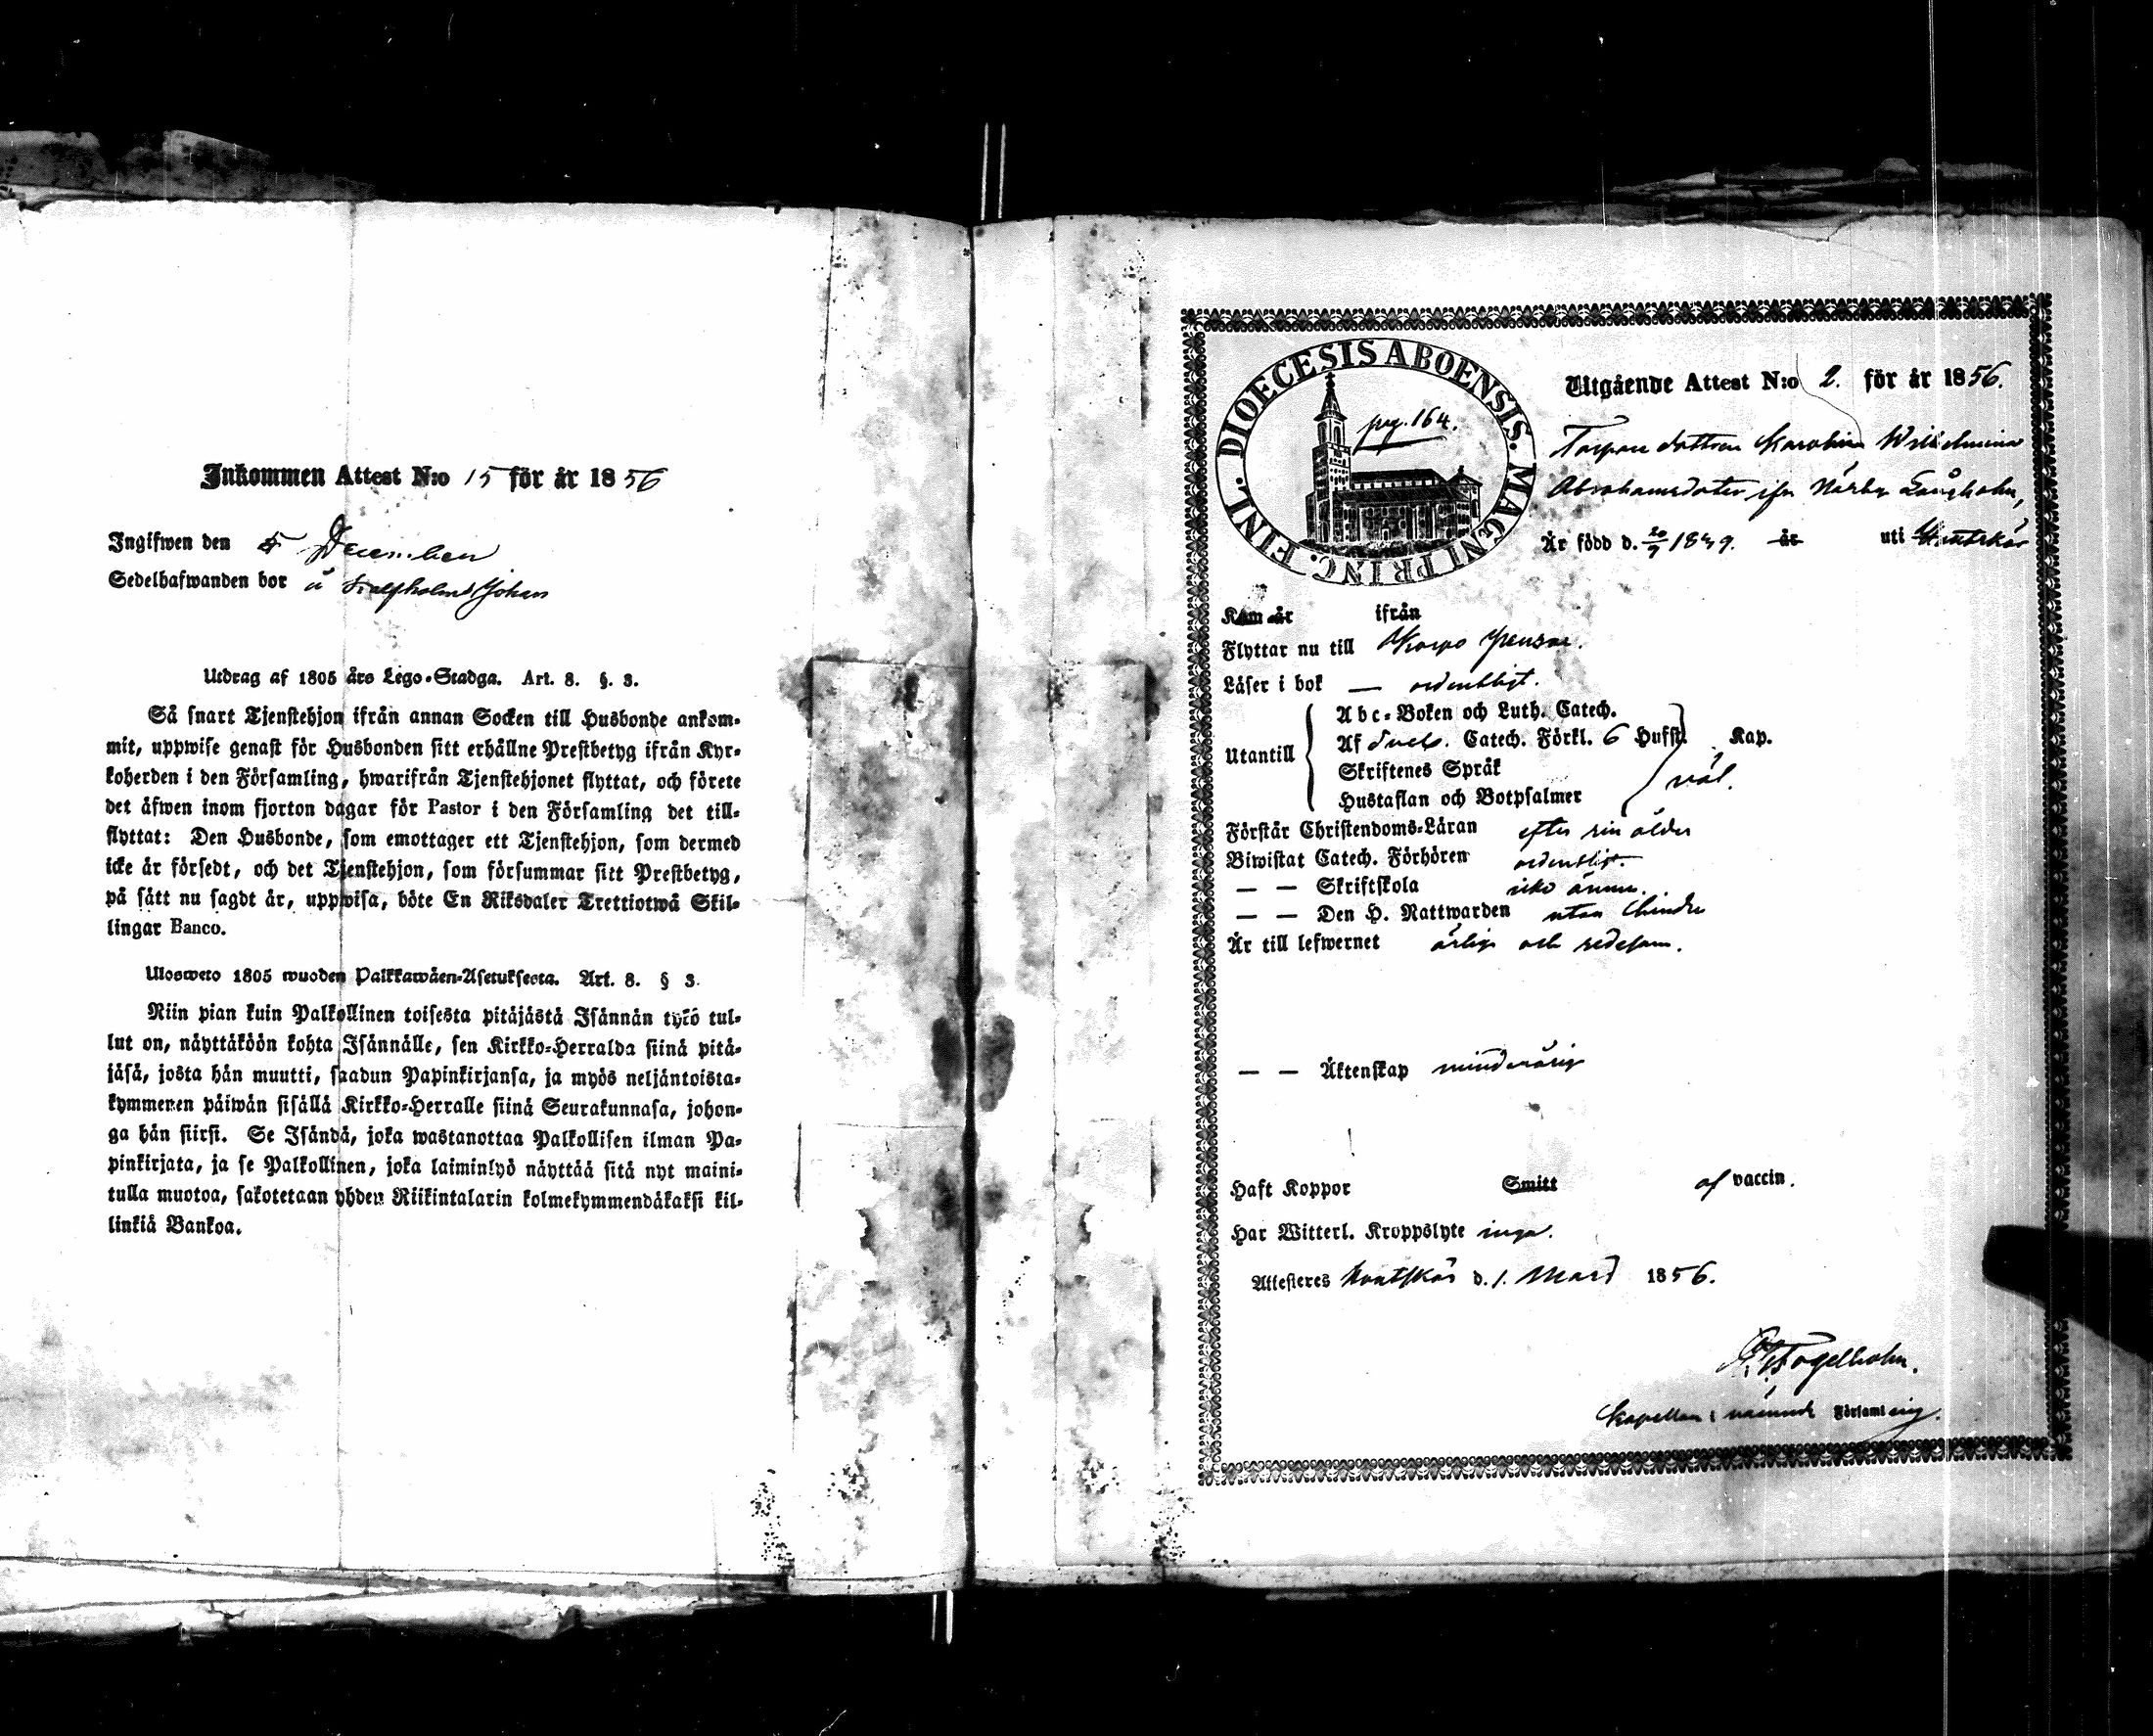 Inkommen Attest N:o 15 för år 1856
Ingifwen den 5 December
Sedelhafwanden bor å Kalfholm Johan
Utdrag af 1805 års Lego-Stadga. Art. 8. §. 3.
Så snart Tjenstehjon ifrån annan Socken till Husbonde ankom-
mit, uppwise genast för Husbonden sitt erhållne Prestbetyg ifrån Kyr-
koherden i den Församling, hwarifrån Tjenstehjonet flyttat, och förete
det äfwen inom fjorton dagar för Pastor i den Församling det till-
flyttat: Den Husbonde, som emottager ett Tjenstehjon, som dermed
icke är försedt, och det Tjenstehjon, som försummar sitt Prestbetyg,
på sätt nu sagdt är, uppwisa, böte En Riksdaler Trettiotwå Skil-
lingar Banco.
Ulosweto 1805 wuoden Palkkawäen-Asetuksesta. Art. 8. § 3.
Niin pian kuin Palkollinen toisesta pitäjästä Isännän tykö tul-
lut on, näyttäköön kohta Isännälle, sen Kirkko-Herralda siinä pitä-
jäsä, josta hän muutti, saadun Papinkirjansa, ja myös neljäntoista-
kymmenen päiwän sisällä Kirkko-Herralle siinä Seurakunnasa, johon-
ga hän siirsi. Se Isändä, joka wastanottaa Palkollisen ilman Pa-
pinkirjata, ja se Palkollinen, joka laiminlyö näyttää sitä nyt maini-
tulla muotoa, sakotetaan yhden Riikintalarin kolmekymmendäkaksi kil-
linkiä Bankoa.
DIOECESIS ABOENSIS. MAGNI PRINC. FINL.
pag. 164.
Utgående Attest N:o 2. för år 1856.
Torpare dottren Karolina Wilhelmina
Abrahamsdoter ifrn Närby Långholm,
Är född d. 20/9 1849. år uti Houtskär
Kom år ifrån
Flyttar nu till Korpo
Läser i bok — ordentligt.
Utantill
Abc-Boken och Luth. Catech.
Af Sveb. Catech. Förkl. 6 Hufst. Kap.
Skriftenes Språk
Hustaflan och Botpsalmer
väl.
Förstår Christendoms-Läran efter sin ålder
Biwistat Catech. Förhören ordentligt.
— — Skriftskola icke ännu.
— — Den H. Nattwarden utan hinder
Är till lefwernet ärlig och redesam.
— — Äktenskap minderårig
Haft Koppor Smitt af vaccin.
Har Witterl. Kroppslyte inga.
Attesteres Houtskär d. 1. Mars 1856.
Fogelholm.
Kapellan i nämnde Församling.